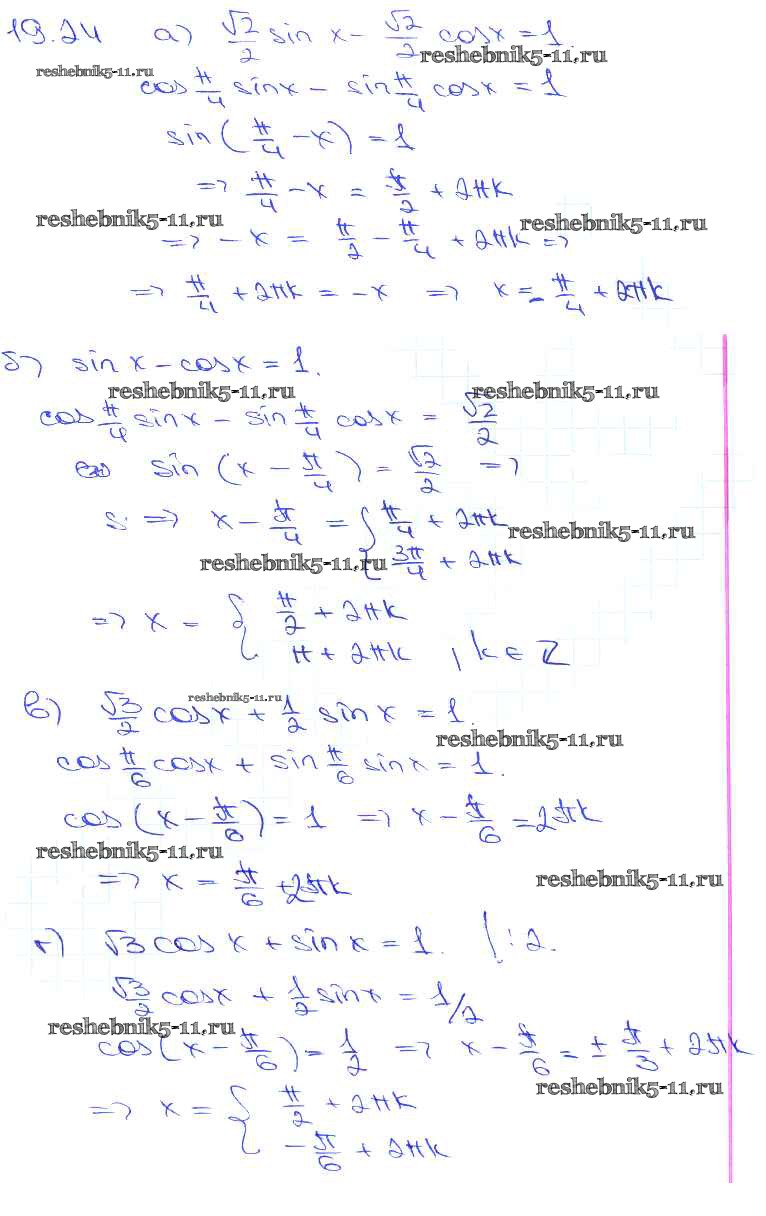 19.24 а) √2/2 sin x - √2/2 cosx = 1.
reshebnik5-11.ru
reshebnik5-11.ru
cos π/4 sinx - sin π/4 cosx = 1
sin(π/4 - x) = 1
=> π/4 - x = π/2 + 2πk
reshebnik5-11.ru
reshebnik5-11.ru
=> -x = π/2 - π/4 + 2πk =>
=> π/4 + 2πk = -x => x = -π/4 + 2πk
б) sin x - cosx = 1.
reshebnik5-11.ru reshebnik5-11.ru
cos π/4 sinx - sin π/4 cosx = √2/2
sin (x - π/4) = √2/2 =>
=> x - π/4 = { π/4 + 2πk
reshebnik5-11.ru
3π/4 + 2πk
reshebnik5-11.ru
=> x = { π/2 + 2πk
π + 2πk , k ∈ Z
reshebnik5-11.ru
в) √3/2 cosx + 1/2 sinx = 1.
reshebnik5-11.ru
cos π/6 cosx + sin π/6 sinx = 1.
cos (x - π/6) = 1 => x - π/6 = 2πk
reshebnik5-11.ru
=> x = π/6 + 2πk
reshebnik5-11.ru
г) √3 cos x + sin x = 1. | : 2.
√3/2 cosx + 1/2 sinx = 1/2
reshebnik5-11.ru
cos(x - π/6) = 1/2 => x - π/6 = ± π/3 + 2πk
reshebnik5-11.ru
=> x = { π/2 + 2πk
-π/6 + 2πk